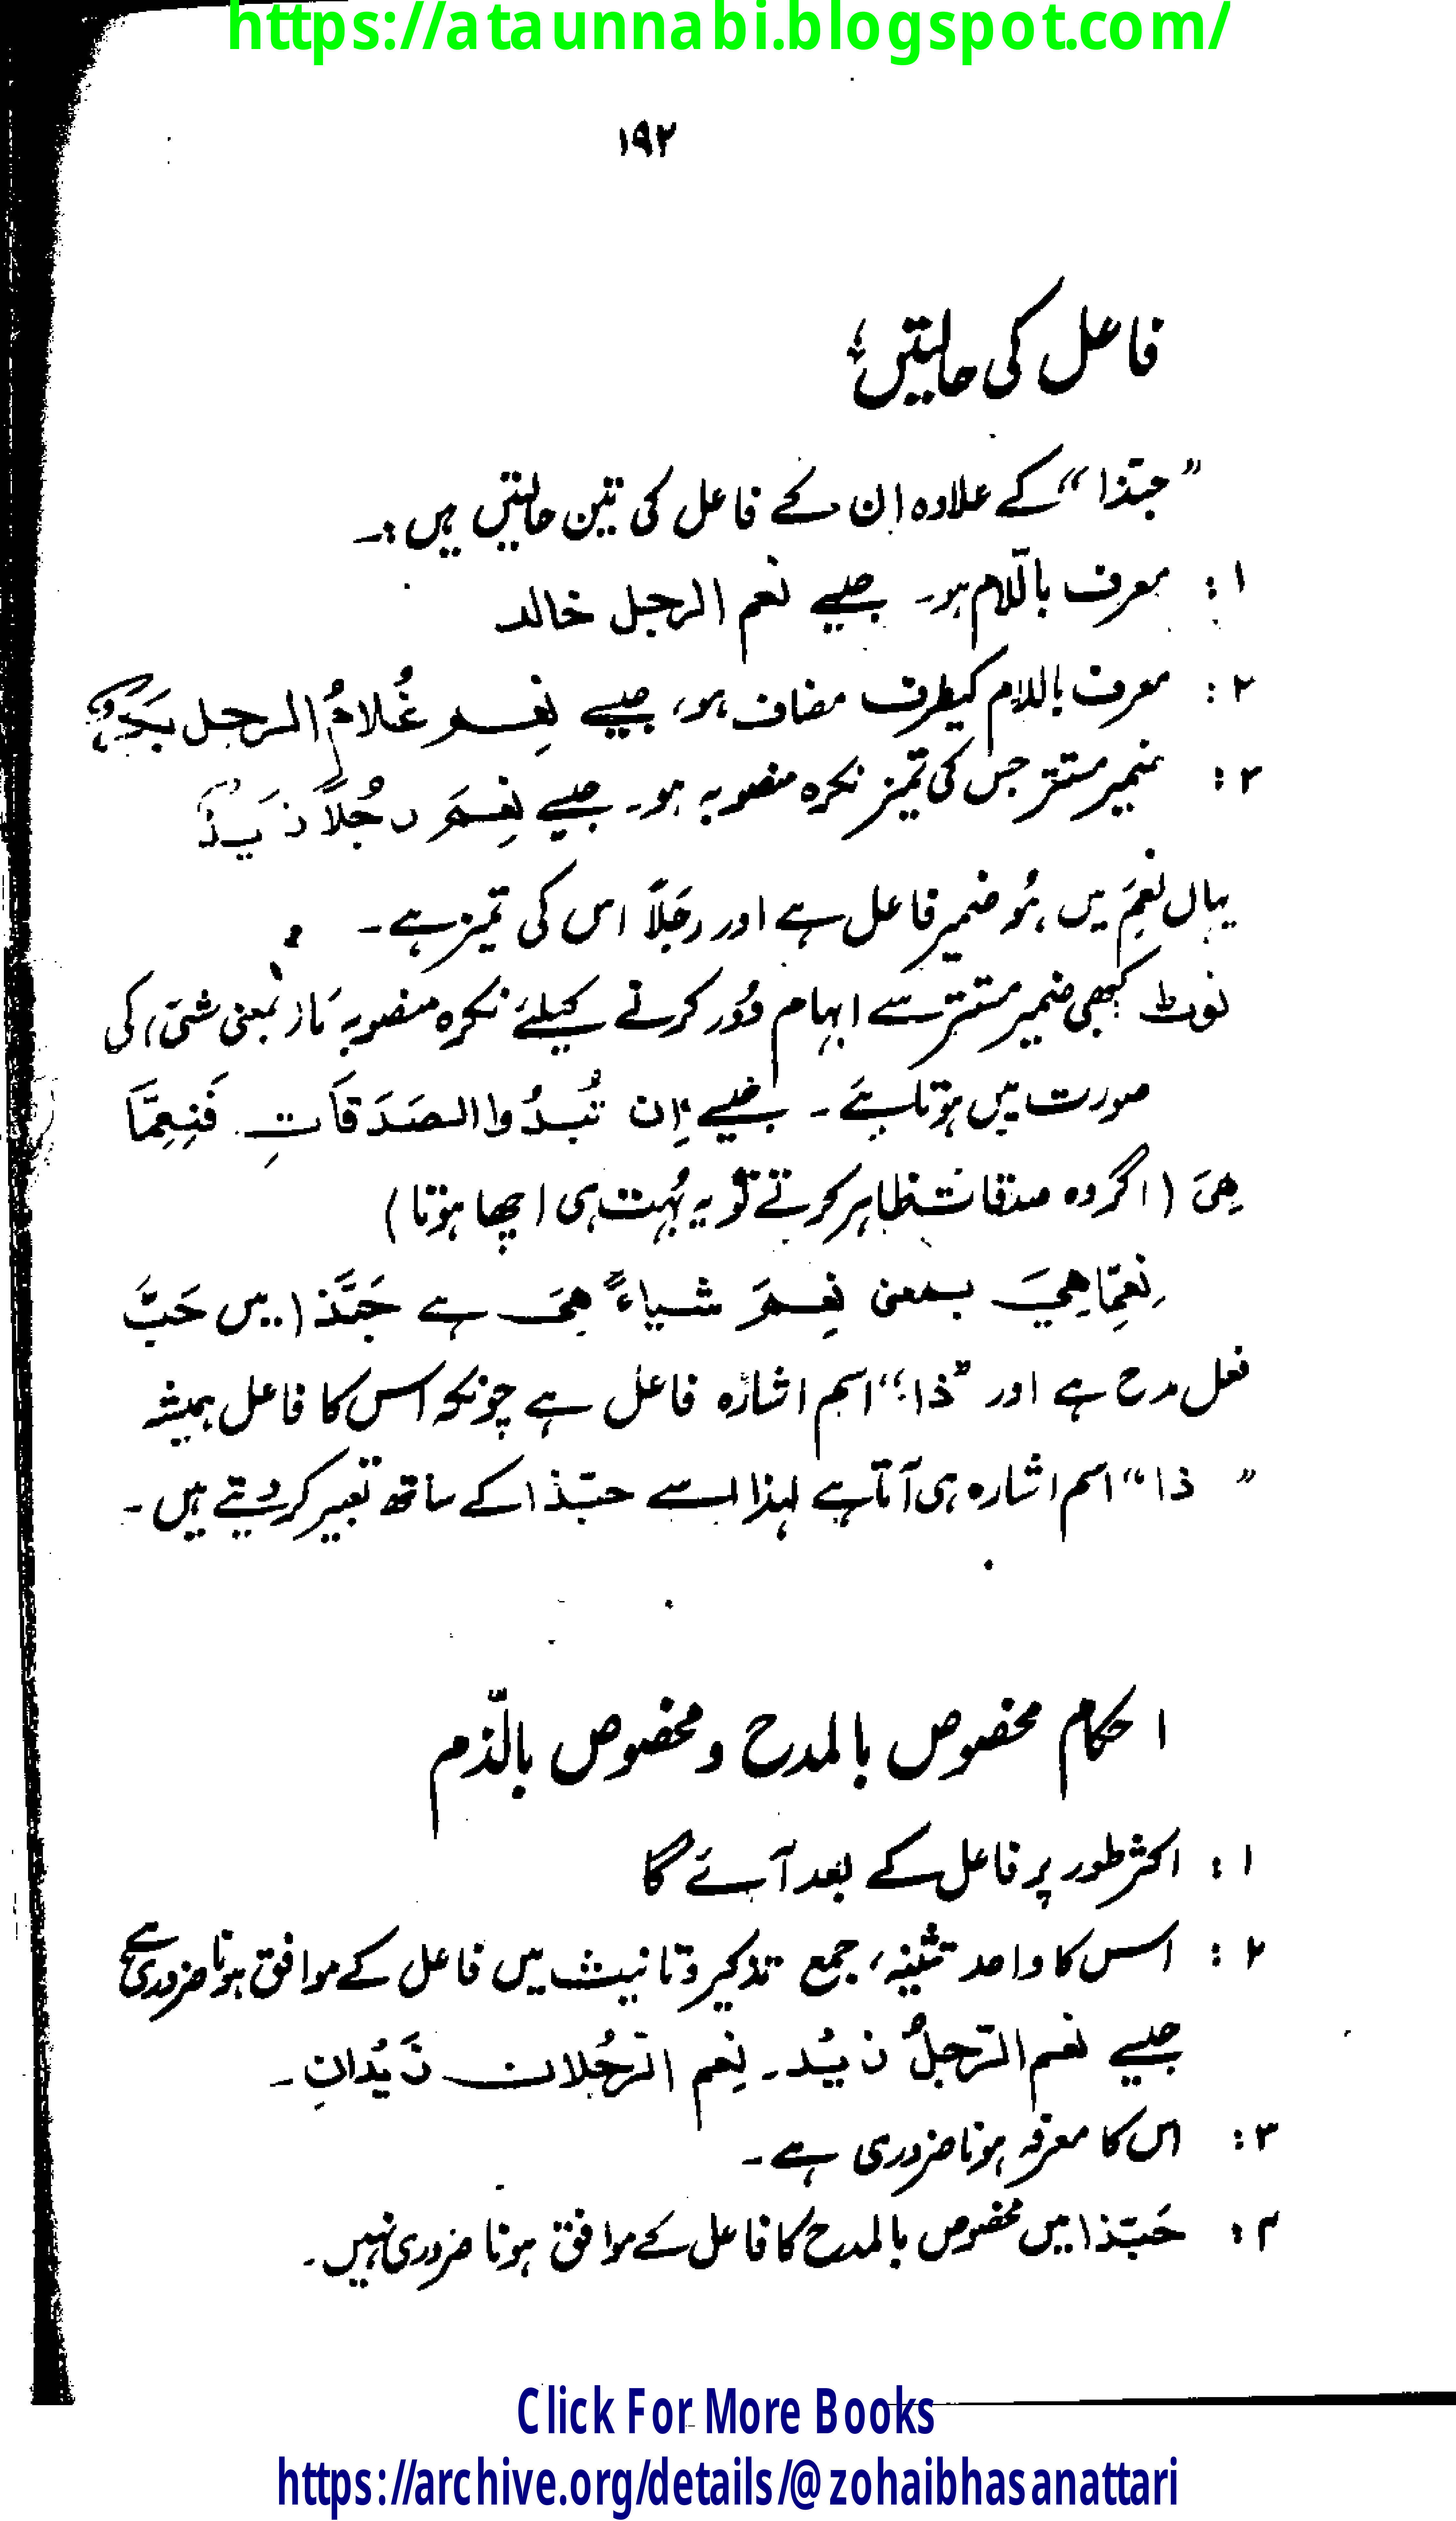 https://ataunnabi.blogspot.com/
۱۹۲
فاعل کی حالتیں؛
”حبّذا“ کے علاوہ ان کے فاعل کی تین حالتیں ہیں :۔
۱ : معرف باللّام ہو۔ جیسے نعم الرجل خالد
۲ : معرف باللام کیطرف مضاف ہو، جیسے نِعم غُلامُ الرجل بَکرٌ
۳ : ضمیر مستتر جس کی تمیز نکرہ منصوبہ ہو۔ جیسے نِعمَ رجُلاً زَیدٌ
یہاں نِعمَ میں ہُو ضمیر فاعل ہے اور رَجلاً اس کی تمیز ہے ۔
نوٹ کبھی ضمیر مستتر سے ابہام دُور کرنے کیلئے نکرہ منصوبہ مَا (بمعنی شئ) کی
صورت میں ہوتا ہے ۔ جیسے اِن تُبدُوا الصَدَقَاتِ فَنِعِمَّا
هِیَ ( اگر وہ صدقات ظاہر کرتے تو یہ بُہت ہی اچھا ہوتا )
نِعِمّاهِیَ بمعنی نِعمَ شیاءً هِیَ ہے حَبَّذا میں حَبَّ
فعل مدح ہے اور ”ذا“ اسم اشارہ فاعل ہے چونکہ اس کا فاعل ہمیشہ
” ذا “ اسم اشارہ ہی آتا ہے لہذا اسے حبّذا کے ساتھ تعبیر کر دیتے ہیں ۔
احکام مخصوص بالمدح و مخصوص بالذّم
۱ : اکثر طور پر فاعل کے بعد آئے گا
۲ : اس کا واحد تثنیہ، جمع تذکیر و تانیث میں فاعل کے موافق ہونا ضروری ہے
جیسے نعم الرّجلُ زیدُ ۔ نِعم الرّجُلان زَیدُانِ ۔
۳ : اس کا معرفہ ہونا ضروری ہے ۔
۴ : حَبّذا میں مخصوص بالمدح کا فاعل کے موافق ہونا ضروری نہیں ۔
Click For More Books
https://archive.org/details/@zohaibhasanattari